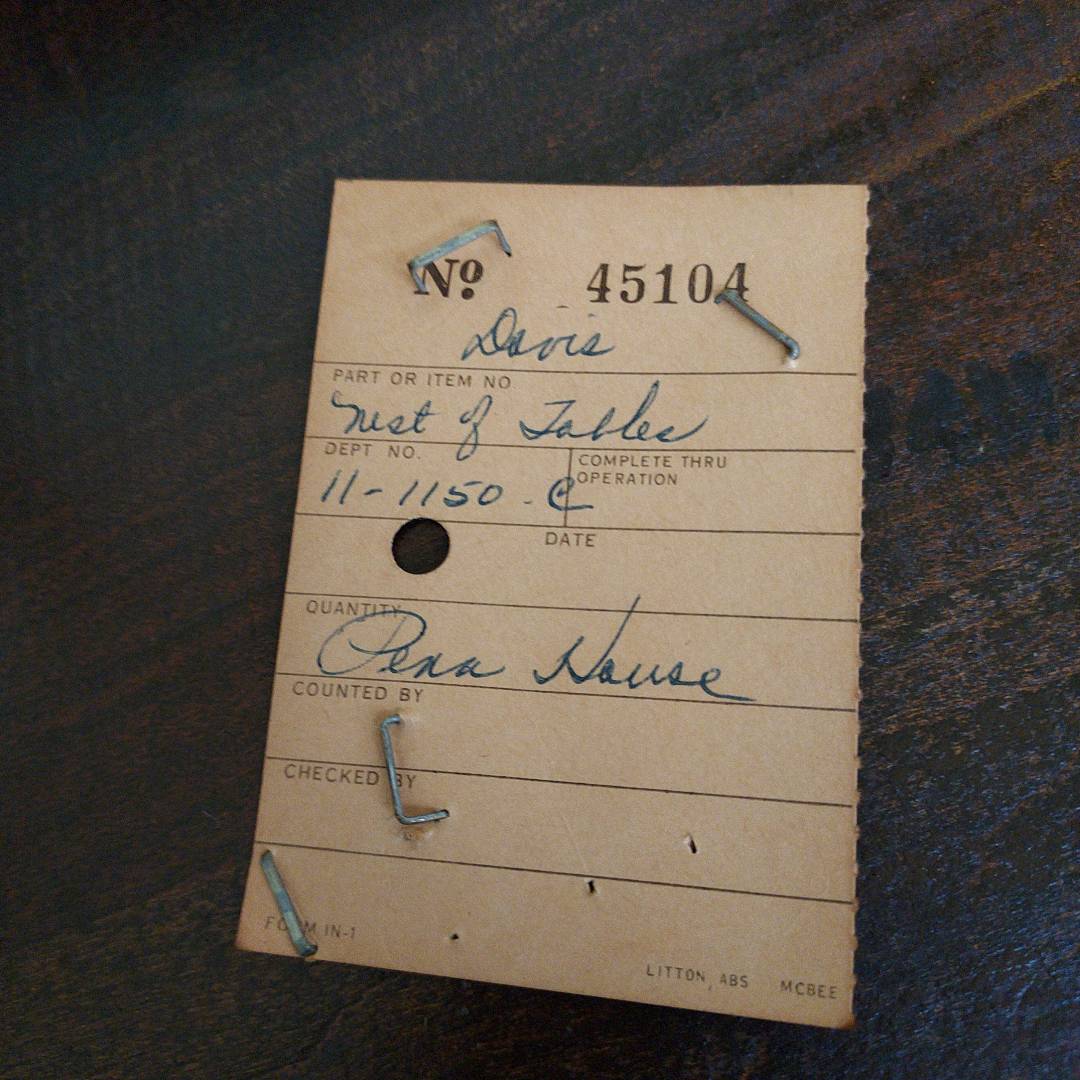 No 45104
Davis
PART OR ITEM NO
Nest of Tables
DEPT NO.
COMPLETE THRU
OPERATION
11-1150-C
DATE
QUANTITY
Penn House
COUNTED BY
CHECKED BY
FORM IN-1
LITTON, ABS MCBEE